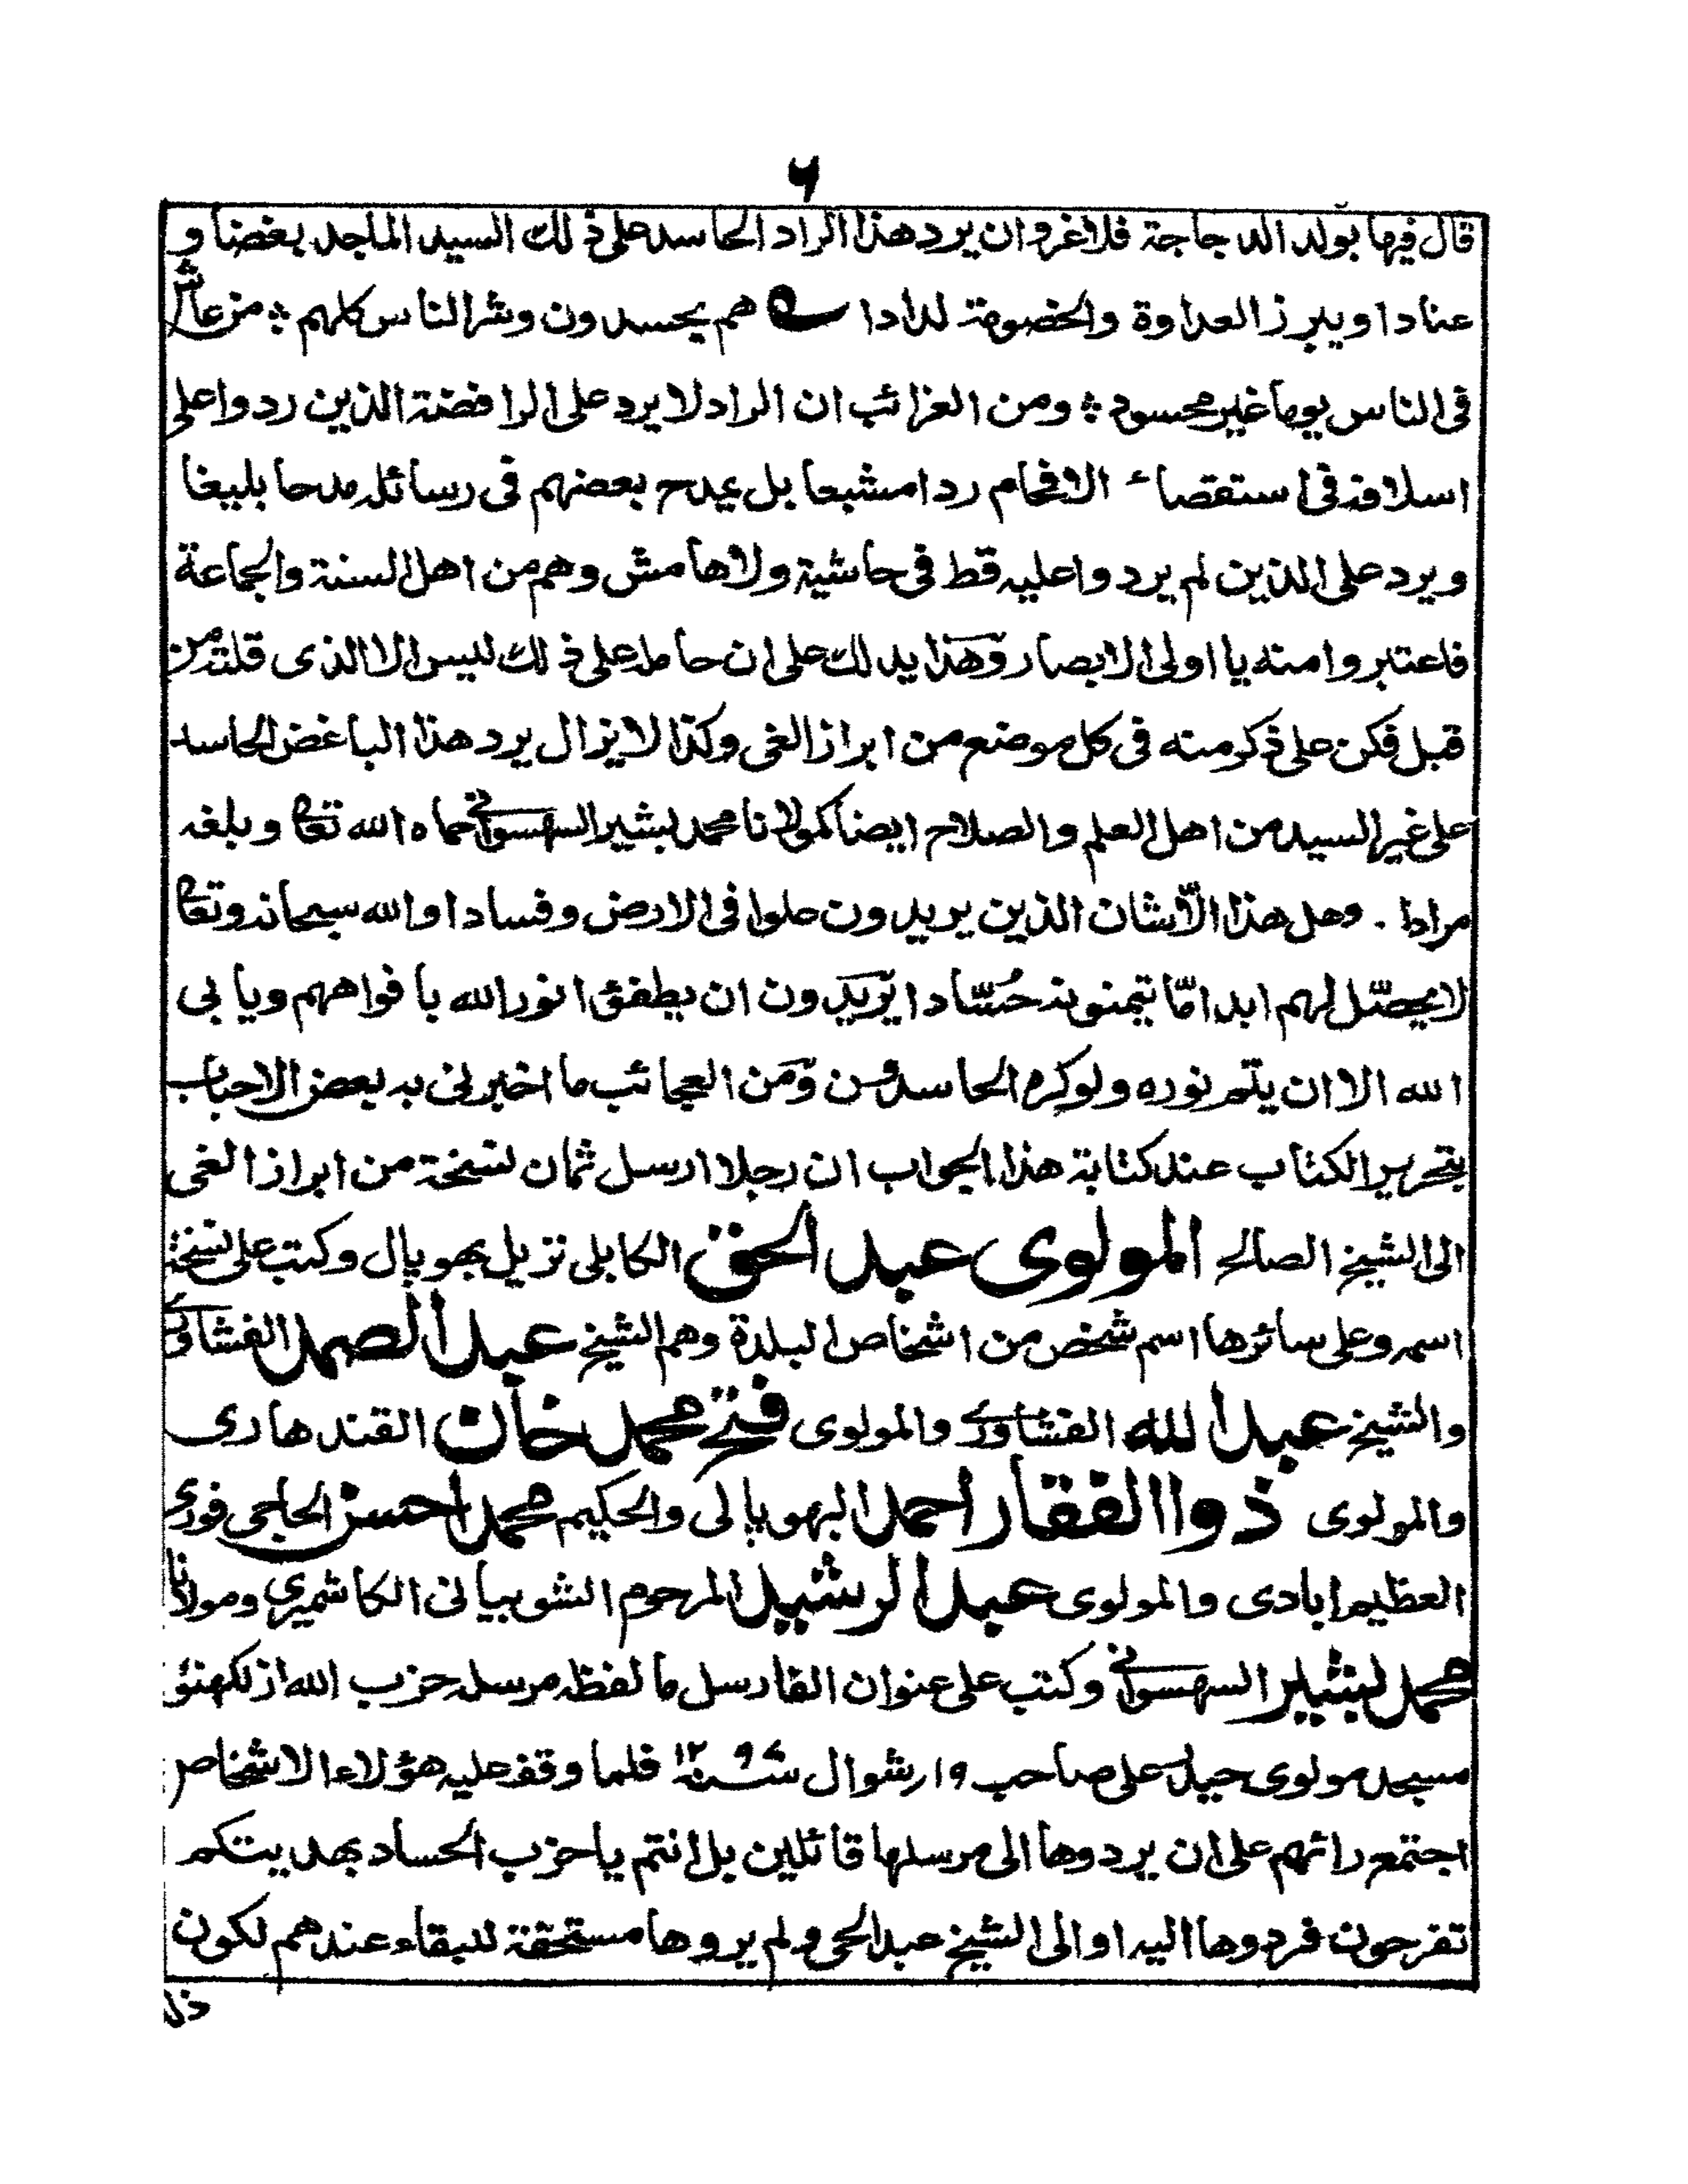 ۶
قال فيها بولد الدجاجة فلاغرو ان يرد هذا الراد الحاسد على ذلك السيد الماجد بغضا و
عنادا ويبرز العداوة والخصومة لدادا ؎ هم يحسدون وشر الناس كلهم ؛ من عاش
فى الناس يوما غير محسود ؛ ومن الغرائب ان الراد لا يرد على الرافضة الذين ردوا على
اسلافه فى استقصاء الافحام ردا مشبعا بل يمدح بعضهم فى رسائله مدحا بليغا
ويرد على الذين لم يردوا عليه قط فى حاشية ولا هامش وهم من اهل السنة والجماعة
فاعتبروا منه يا اولى الابصار وهذا يدلك على ان حامله على ذلك ليس الا الذى قلته من
قبل فكن على ذكر منه فى كل موضع من ابراز الغى وكذا لا يزال يرد هذا الباغض الحاسد
على غير السيد من اهل العلم والصلاح ايضا كمولانا محمد بشير السهسوانى حماه الله تعالى وبلغه
مراده . وهل هذا الا شان الذين يريدون علوا فى الارض وفسادا والله سبحانه وتعالى
لا يحصّل لهم ابدا مّا يتمنونه حُسّادا يريدون ان يطفؤا نور الله بافواههم ويابى
الله الا ان يتم نوره ولو كره الحاسدون ومن العجائب ما اخبرنى به بعض الاحباب
بتحرير الكتاب عند كتابة هذا الجواب ان رجلا ارسل ثمان نسخة من ابراز الغى
الى الشيخ الصالح المولوى عبد الحق الكابلى نزيل بهوپال وكتب على نسخة
اسمه وعلى سائرها اسم شخص من اشخاص البلدة وهم الشيخ عبد الصمد الفشاورى
والشيخ عبد الله الفشاورى والمولوى فتح محمد خان القندهارى
والمولوى ذوا الفقار احمد البهوپالى والحكيم محمد احسن الحاجى فورى
العظيم ابادى والمولوى عبد الرشيد المرحوم الشوبيانى الكاشميرى ومولانا
محمد بشير السهسوانى وكتب على عنوان القارسل ما لفظه مرسله حزب الله از لكهنؤ
مسجد مولوى حيدر على صاحب ۱۹ شوال سنه ۱۲۹۷ فلما وقف عليه هؤلاء الاشخاص
اجتمع رائهم على ان يردوها الى مرسلها قائلين بل انتم يا حزب الحساد بهديتكم
تفرحون فردوها اليه او الى الشيخ عبد الحى ولم يروها مستحقة للبقاء عندهم لكون